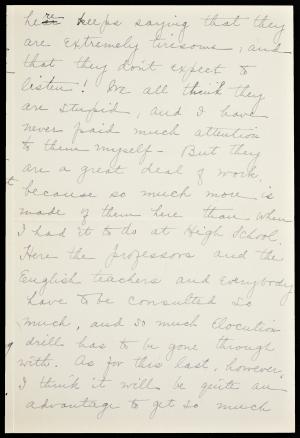 here keeps saying that they
are extremely tiresome, and
that they don't expect to
listen! We all think they
are stupid, and I have
never paid much attention
to them myself - But they
are a great deal of work,
because so much more is
made of them here than when
I had it to do at High School.
Here the professors and the
English teachers and everybody
have to be consulted so
much, and so much Elocution
drill has to be gone through
with. As for this last, however,
I think it will be quite an
advantage to get so much